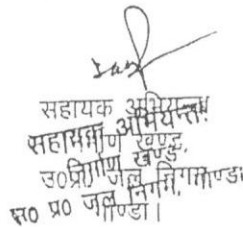 सहायक अभियन्ता
सहायक अभियन्ता
निर्माण खण्ड,
निर्माण खण्ड,
उ०प्र० जल निगम, गोण्डा
उ० प्र० जल निगम,
गोण्डा।